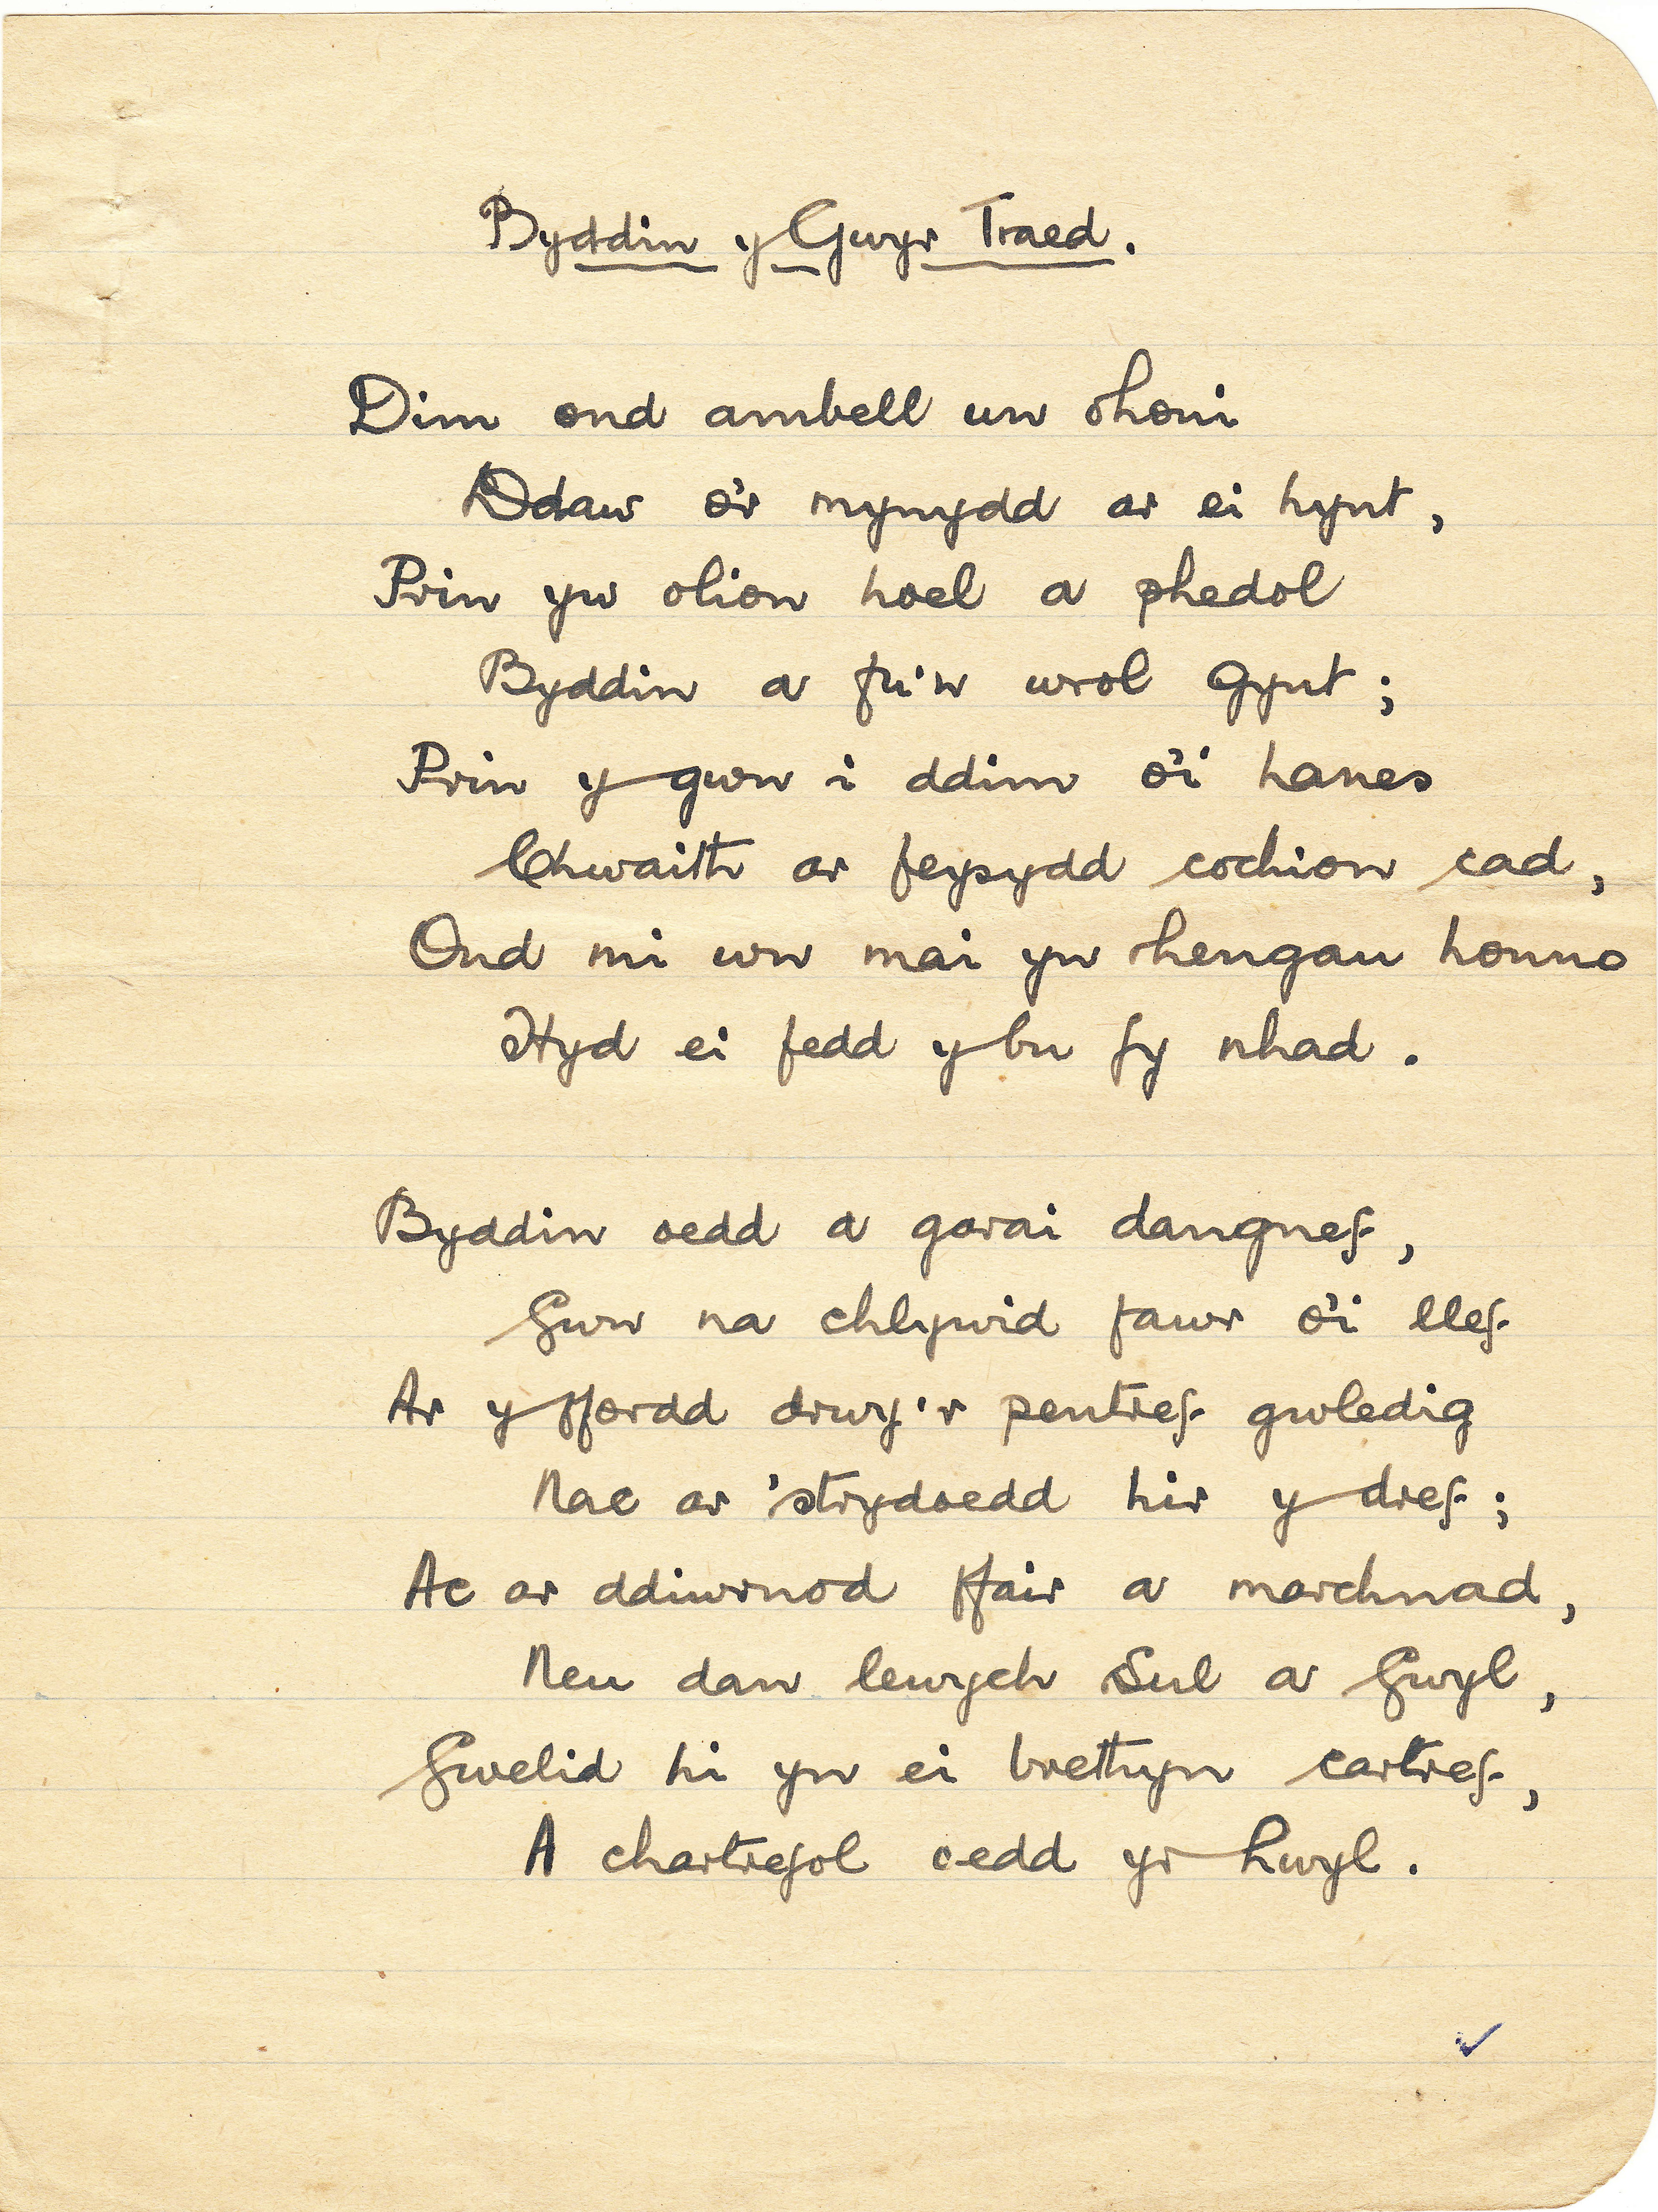 Byddin y Gwyr Traed.
Dim ond ambell un ohoni
Ddaw o'r mynydd ar ei hynt,
Prin yw olion hoel a phedol
Byddin a fu'n wrol gynt;
Prin y gwn i ddim o'i hanes
Chwaith ar feysydd cochion cad,
Ond mi wn mai yn rhengau honno
Hyd ei fedd y bu fy nhad.
Byddin oedd a garai dangnef,
Gwn na chlywid fawr o'i llef
Ar y ffordd drwy'r pentref gwledig
Nac ar 'strydoedd hir y dref;
Ac ar ddiwrnod ffair a marchnad,
Neu dan lewych Sul a Gwyl,
Gwelid hi yn ei brethyn cartref,
A chartrefol oedd yr hwyl.